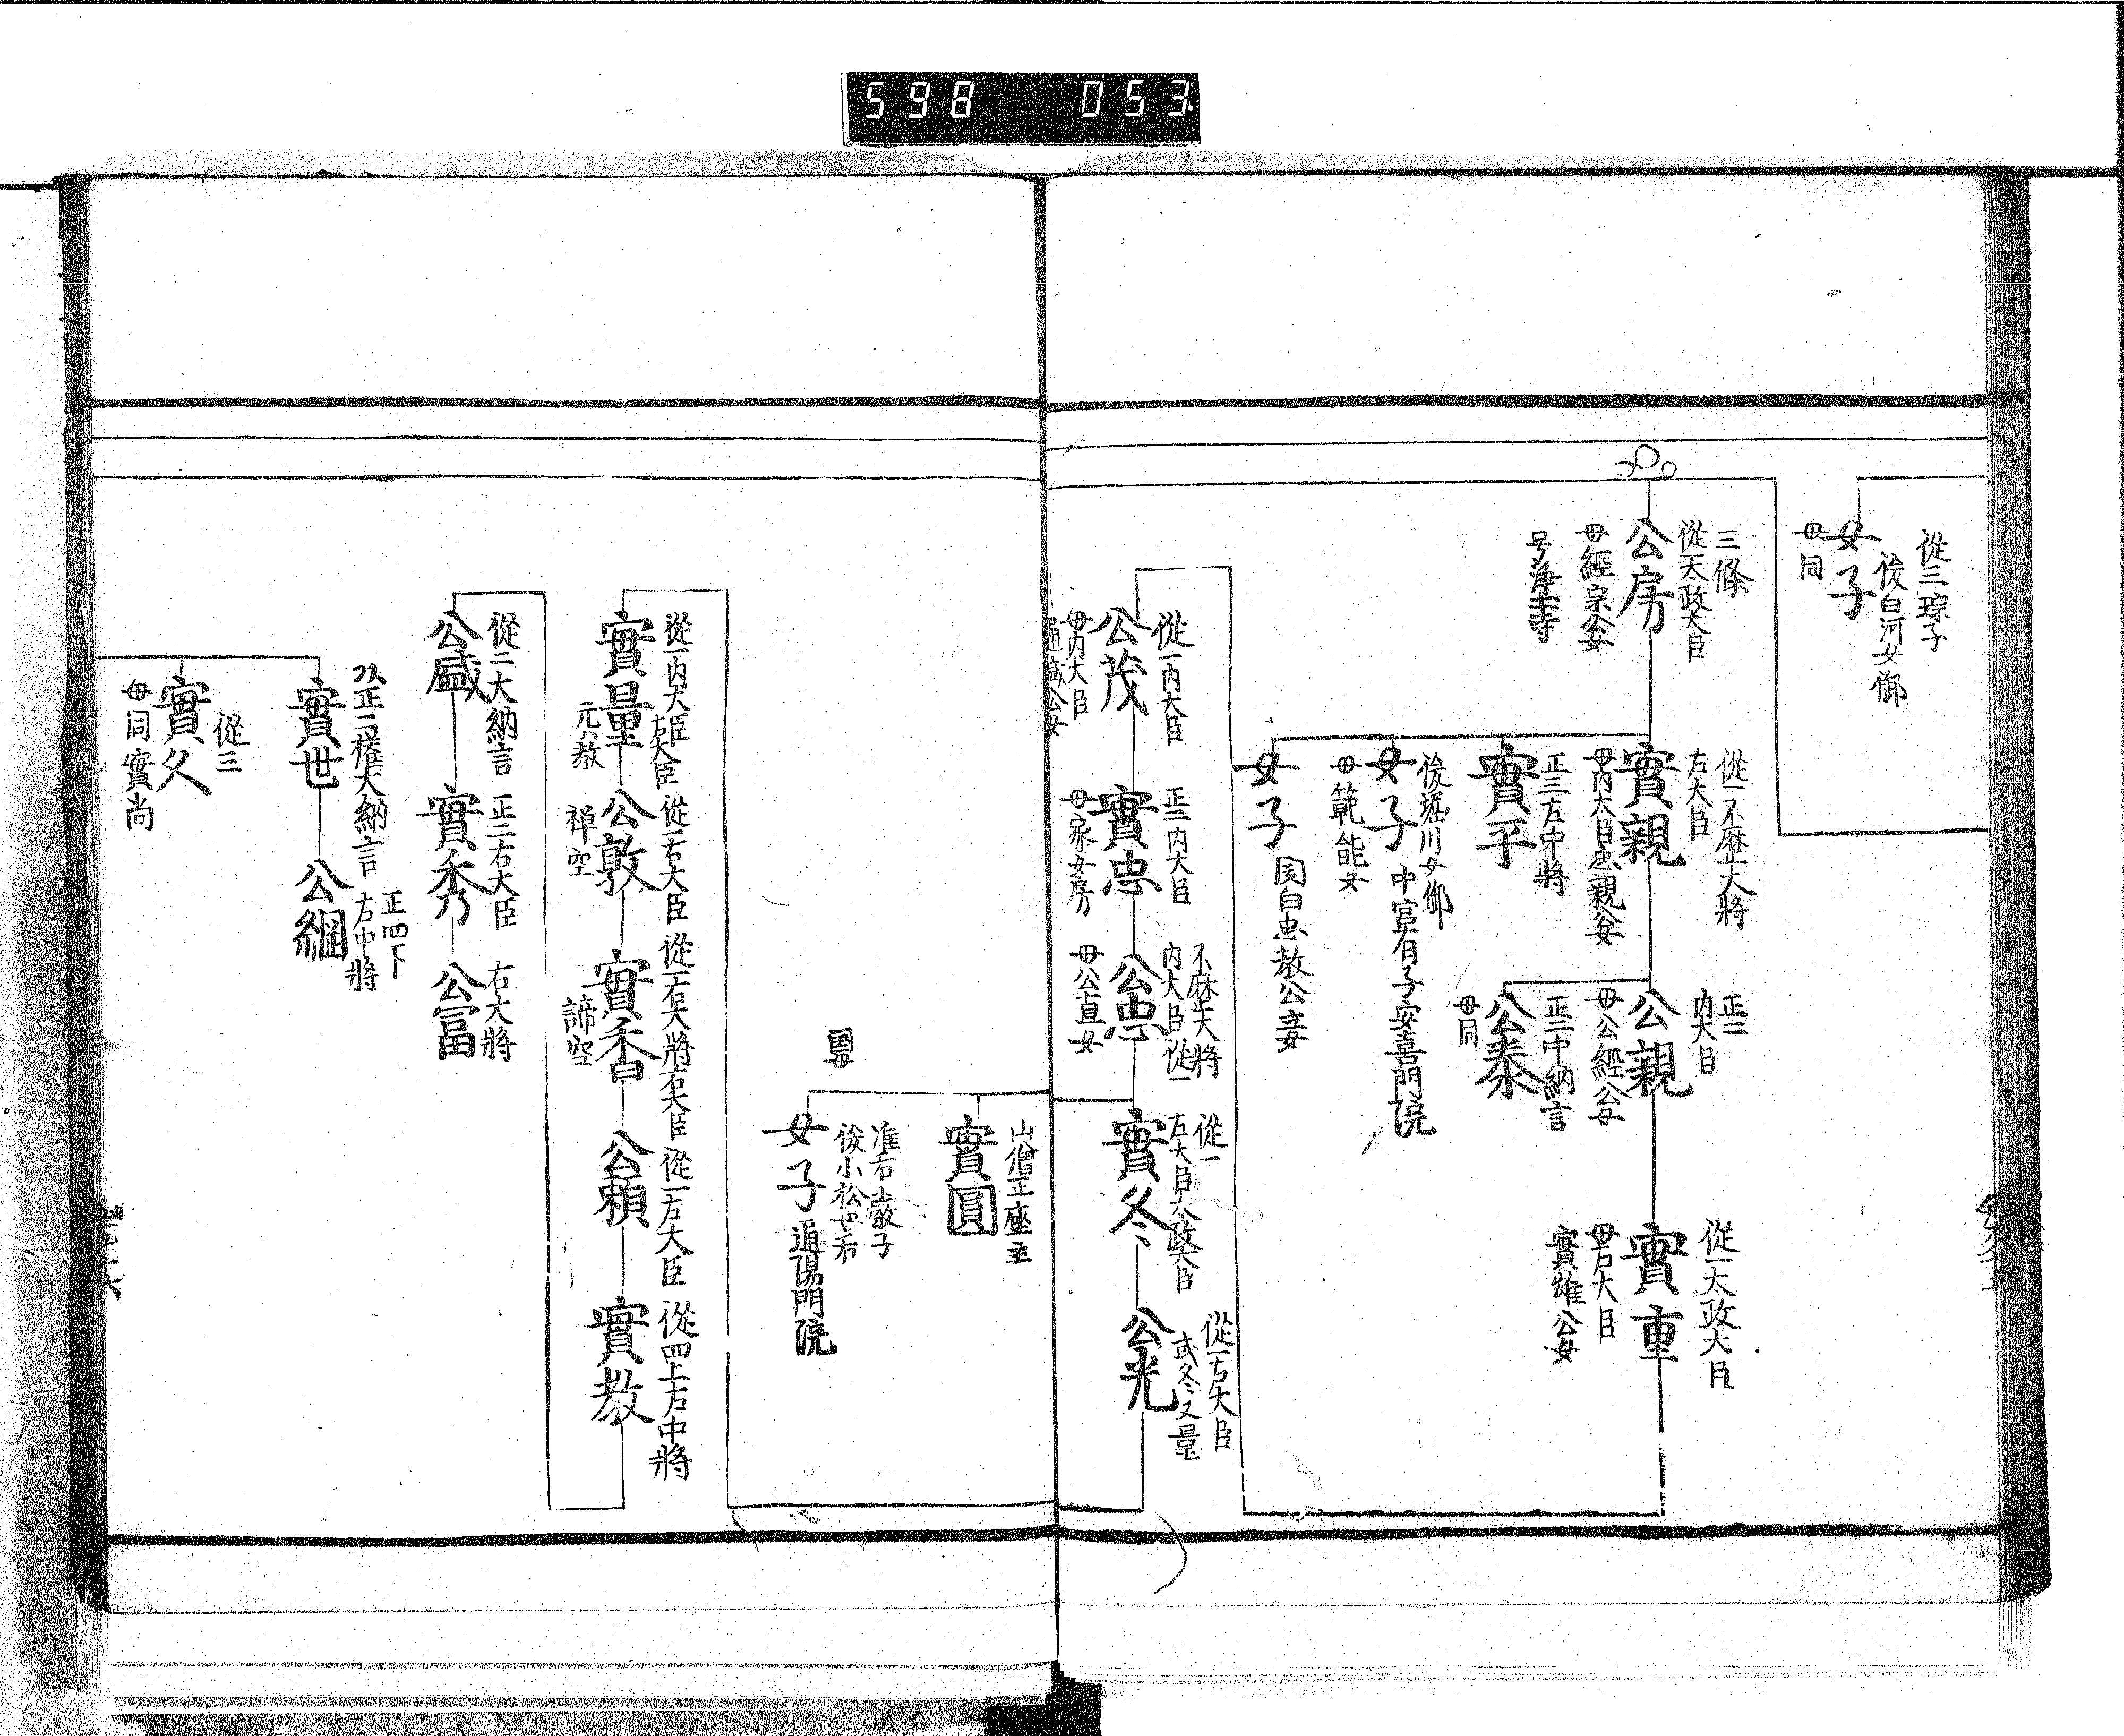 598 053
從三琮子
後白河女御
女子
母同
三條
從一太政大臣
公房
母經宗公女
号淨土寺
從一不歴大將
左大臣
實親
母内大臣忠親公女
正三左中將
實平
後堀川女御
女子 中宮有子安喜門院
母範能女
女子 関白忠教公妾
正二
内大臣
公親
母公經公女
正二中納言
公泰
母同
從一太政大臣
實重
母右大臣
實雄公女
從一内大臣
公茂
母内大臣
通盛公女
正二内大臣
實忠
母家女房
不歴大將
内大臣從一
公忠
母公直女
從一
左大臣太政大臣
實冬
從一右大臣
或冬又量
公光
山僧正座主
實圓
准后嚴子
後小松
女子 通陽門院
国母
從一内大臣
左大臣
實量
元公敦
從一右大臣
公敦
禅空
從一右大將右大臣
實香
諦空
從一左大臣
公頼
從四上左中將
實教
從二大納言
公盛
正二右大臣
實秀
右大將
公富
正二權大納言
實世
正四下
右中將
公綱
從三
實久
母同實尚